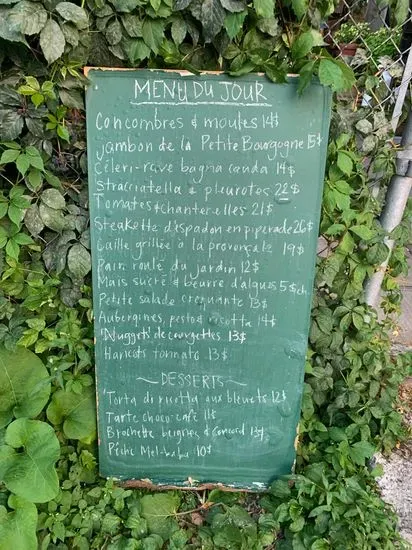 MENU DU JOUR
Concombres & moules 14$
Jambon de la Petite Bourgogne 15$
Céleri-rave bagna cauda 14$
Stracciatella & pleurotes 22$
Tomates & chanterelles 21$
Steakette d'espadon en piperade 26$
Caille grillée à la provençale 19$
Pain roulé du jardin 12$
Mais sucré & beurre d'algues 5$ch
Petite salade croquante 13$
Aubergines, pesto & ricotta 14$
Nuggets de courgettes 13$
Haricots tonnato 13$
~DESSERTS~
Torta di ricotta aux bleuets 12$
Tarte choco-café 11$
Brochette beignes & Concord 13$
Pêche Mel-baba 10$